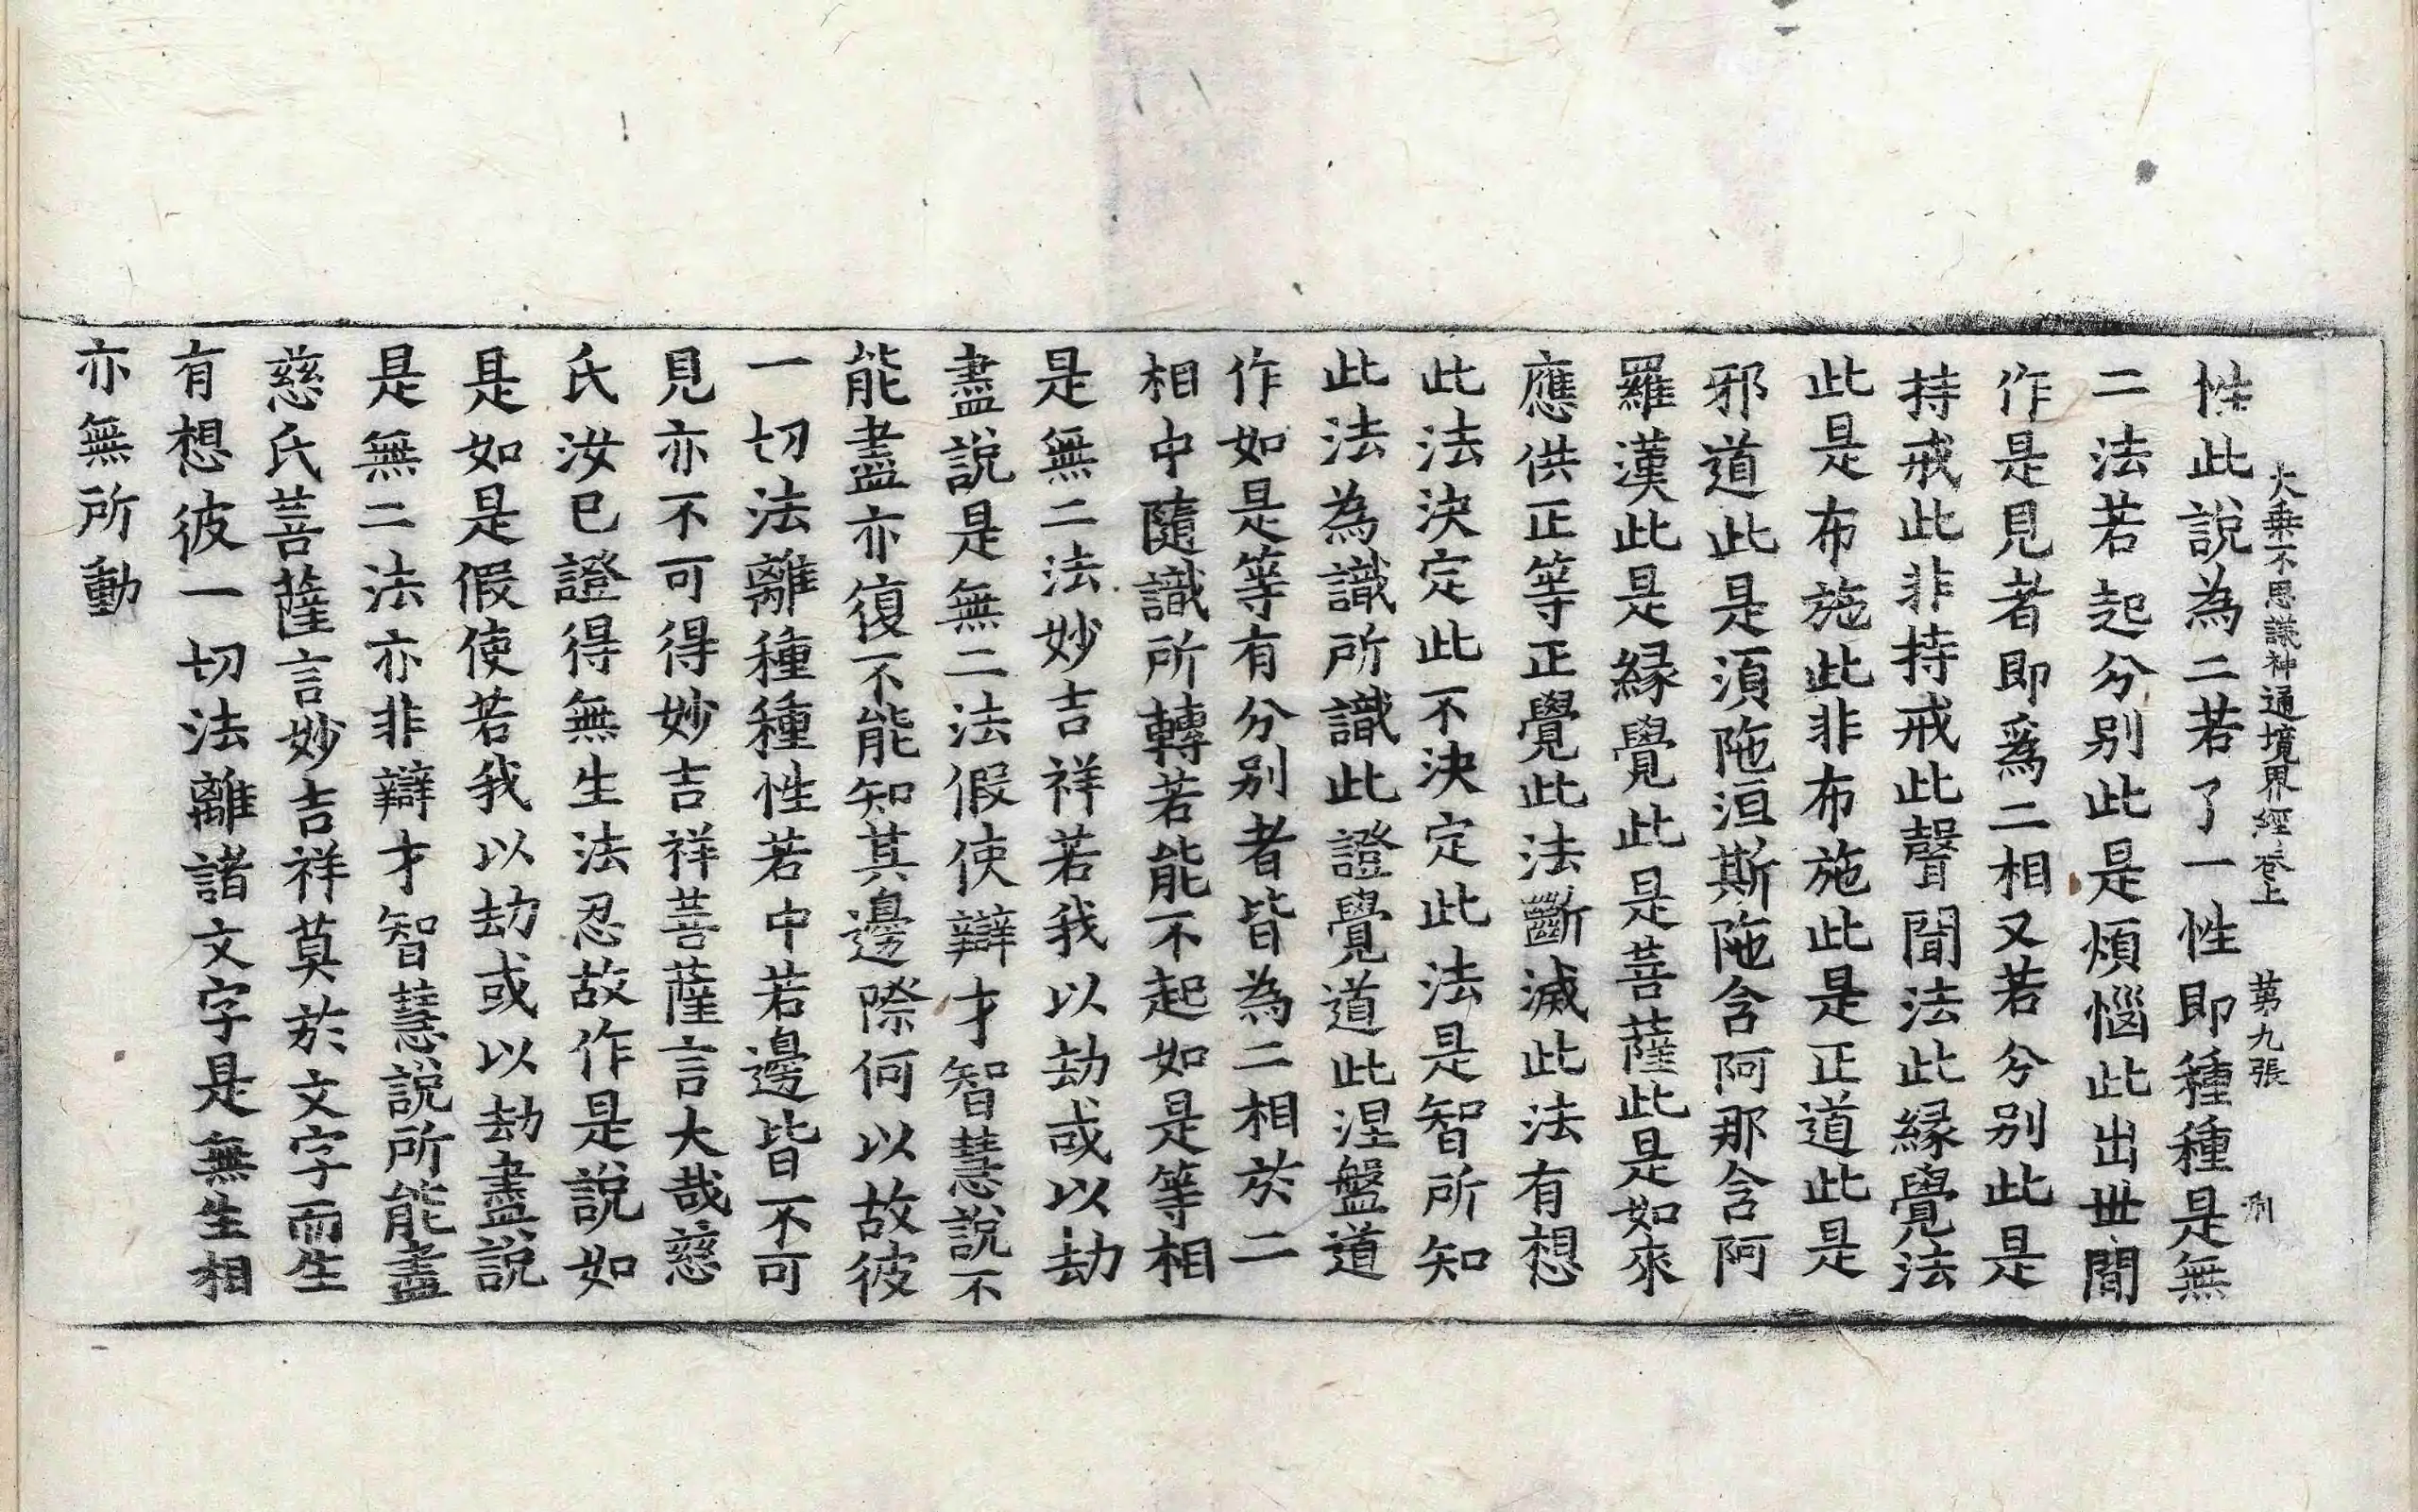 大乗不思議神通境界經卷上 第九張 刑
性此說為二若了一性即種種是無
二法若起分别此是煩惱此出丗間
作是見者即爲二相又若分别此是
持戒此非持戒此聲聞法此縁覺法
此是布施此非布施此是正道此是
邪道此是湏陁洹斯陁含阿那含阿
羅漢此是縁覺此是菩薩此是如來
應供正等正覺此法斷滅此法有想
此法決定此不決定此法是智所知
此法為識所識此證覺道此涅盤道
作如是等有分别者皆為二相於二
相中隨識所轉若能不起如是等相
是無二法妙吉祥若我以劫或以劫
盡說是無二法假使辯才智慧說不
能盡亦復不能知其邊際何以故彼
一切法離種種性若中若邊皆不可
見亦不可得妙吉祥菩薩言大哉慈
氏汝巳證得無生法忍故作是說如
是如是假使若我以劫或以劫盡說
是無二法亦非辯才智慧說所能盡
慈氏菩薩言妙吉祥莫於文字而生
有想彼一切法離諸文字是無生相
亦無所動